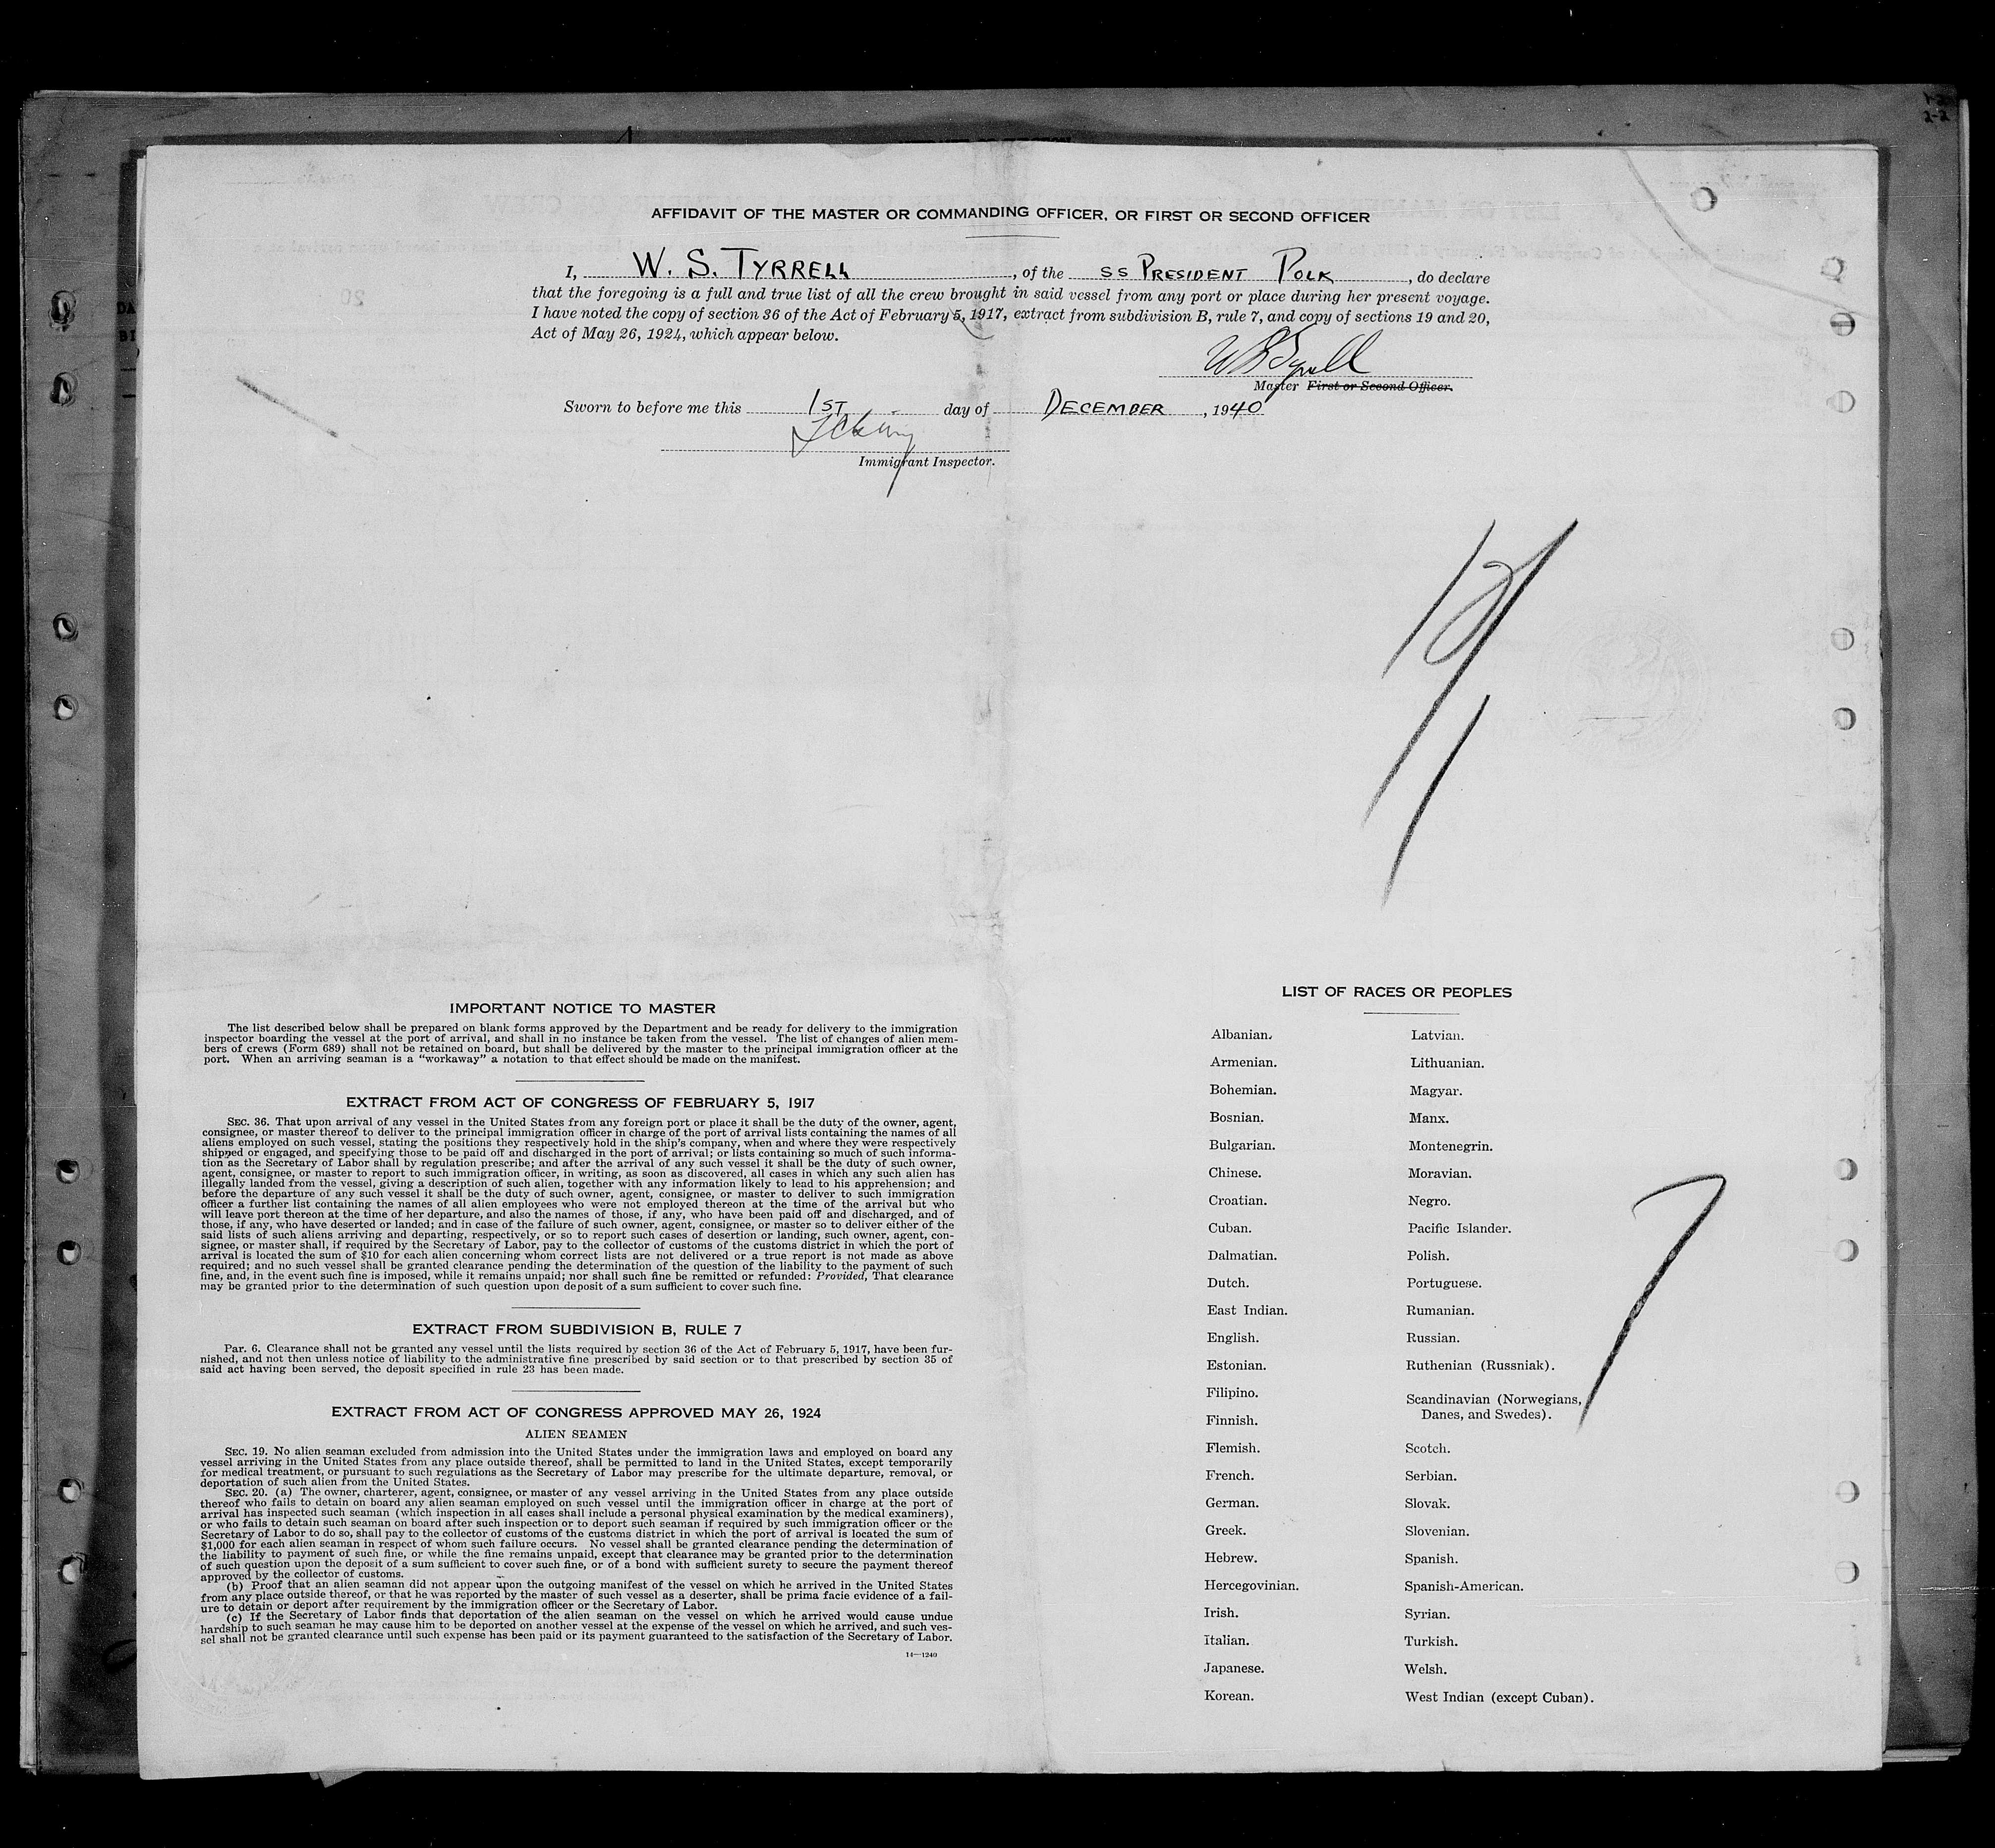 AFFIDAVIT OF THE MASTER OR COMMANDING OFFICER, OR FIRST OR SECOND OFFICER
I, W. S. TYRRELL, of the SS PRESIDENT POLK, do declare
that the foregoing is a full and true list of all the crew brought in said vessel from any port or place during her present voyage.
I have noted the copy of section 36 of the Act of February 5, 1917, extract from subdivision B, rule 7, and copy of sections 19 and 20,
Act of May 26, 1924, which appear below.
W S Tyrrell
Master First or Second Officer.
Sworn to before me this 1ST day of DECEMBER, 1940
Immigrant Inspector.
IMPORTANT NOTICE TO MASTER
The list described below shall be prepared on blank forms approved by the Department and be ready for delivery to the immigration
inspector boarding the vessel at the port of arrival, and shall in no instance be taken from the vessel. The list of changes of alien mem-
bers of crews (Form 689) shall not be retained on board, but shall be delivered by the master to the principal immigration officer at the
port. When an arriving seaman is a "workaway" a notation to that effect should be made on the manifest.
EXTRACT FROM ACT OF CONGRESS OF FEBRUARY 5, 1917
SEC. 36. That upon arrival of any vessel in the United States from any foreign port or place it shall be the duty of the owner, agent,
consignee, or master thereof to deliver to the principal immigration officer in charge of the port of arrival lists containing the names of all
aliens employed on such vessel, stating the positions they respectively hold in the ship's company, when and where they were respectively
shipped or engaged, and specifying those to be paid off and discharged in the port of arrival; or lists containing so much of such informa-
tion as the Secretary of Labor shall by regulation prescribe; and after the arrival of any such vessel it shall be the duty of such owner,
agent, consignee, or master to report to such immigration officer, in writing, as soon as discovered, all cases in which any such alien has
illegally landed from the vessel, giving a description of such alien, together with any information likely to lead to his apprehension; and
before the departure of any such vessel it shall be the duty of such owner, agent, consignee, or master to deliver to such immigration
officer a further list containing the names of all alien employees who were not employed thereon at the time of the arrival but who
will leave port thereon at the time of her departure, and also the names of those, if any, who have been paid off and discharged, and of
those, if any, who have deserted or landed; and in case of the failure of such owner, agent, consignee, or master so to deliver either of the
said lists of such aliens arriving and departing, respectively, or so to report such cases of desertion or landing, such owner, agent, con-
signee, or master shall, if required by the Secretary of Labor, pay to the collector of customs of the customs district in which the port of
arrival is located the sum of $10 for each alien concerning whom correct lists are not delivered or a true report is not made as above
required; and no such vessel shall be granted clearance pending the determination of the question of the liability to the payment of such
fine, and, in the event such fine is imposed, while it remains unpaid; nor shall such fine be remitted or refunded: Provided, That clearance
may be granted prior to the determination of such question upon deposit of a sum sufficient to cover such fine.
EXTRACT FROM SUBDIVISION B, RULE 7
Par. 6. Clearance shall not be granted any vessel until the lists required by section 36 of the Act of February 5, 1917, have been fur-
nished, and not then unless notice of liability to the administrative fine prescribed by said section or to that prescribed by section 35 of
said act having been served, the deposit specified in rule 23 has been made.
EXTRACT FROM ACT OF CONGRESS APPROVED MAY 26, 1924
ALIEN SEAMEN
SEC. 19. No alien seaman excluded from admission into the United States under the immigration laws and employed on board any
vessel arriving in the United States from any place outside thereof, shall be permitted to land in the United States, except temporarily
for medical treatment, or pursuant to such regulations as the Secretary of Labor may prescribe for the ultimate departure, removal, or
deportation of such alien from the United States.
SEC. 20. (a) The owner, charterer, agent, consignee, or master of any vessel arriving in the United States from any place outside
thereof who fails to detain on board any alien seaman employed on such vessel until the immigration officer in charge at the port of
arrival has inspected such seaman (which inspection in all cases shall include a personal physical examination by the medical examiners),
or who fails to detain such seaman on board after such inspection or to deport such seaman if required by such immigration officer or the
Secretary of Labor to do so, shall pay to the collector of customs of the customs district in which the port of arrival is located the sum of
$1,000 for each alien seaman in respect of whom such failure occurs. No vessel shall be granted clearance pending the determination of
the liability to payment of such fine, or while the fine remains unpaid, except that clearance may be granted prior to the determination
of such question upon the deposit of a sum sufficient to cover such fine, or of a bond with sufficient surety to secure the payment thereof
approved by the collector of customs.
(b) Proof that an alien seaman did not appear upon the outgoing manifest of the vessel on which he arrived in the United States
from any place outside thereof, or that he was reported by the master of such vessel as a deserter, shall be prima facie evidence of a fail-
ure to detain or deport after requirement by the immigration officer or the Secretary of Labor.
(c) If the Secretary of Labor finds that deportation of the alien seaman on the vessel on which he arrived would cause undue
hardship to such seaman he may cause him to be deported on another vessel at the expense of the vessel on which he arrived, and such ves-
sel shall not be granted clearance until such expense has been paid or its payment guaranteed to the satisfaction of the Secretary of Labor.
14—1240
LIST OF RACES OR PEOPLES
Albanian.
Armenian.
Bohemian.
Bosnian.
Bulgarian.
Chinese.
Croatian.
Cuban.
Dalmatian.
Dutch.
East Indian.
English.
Estonian.
Filipino.
Finnish.
Flemish.
French.
German.
Greek.
Hebrew.
Hercegovinian.
Irish.
Italian.
Japanese.
Korean.
Latvian.
Lithuanian.
Magyar.
Manx.
Montenegrin.
Moravian.
Negro.
Pacific Islander.
Polish.
Portuguese.
Rumanian.
Russian.
Ruthenian (Russniak).
Scandinavian (Norwegians,
Danes, and Swedes).
Scotch.
Serbian.
Slovak.
Slovenian.
Spanish.
Spanish-American.
Syrian.
Turkish.
Welsh.
West Indian (except Cuban).